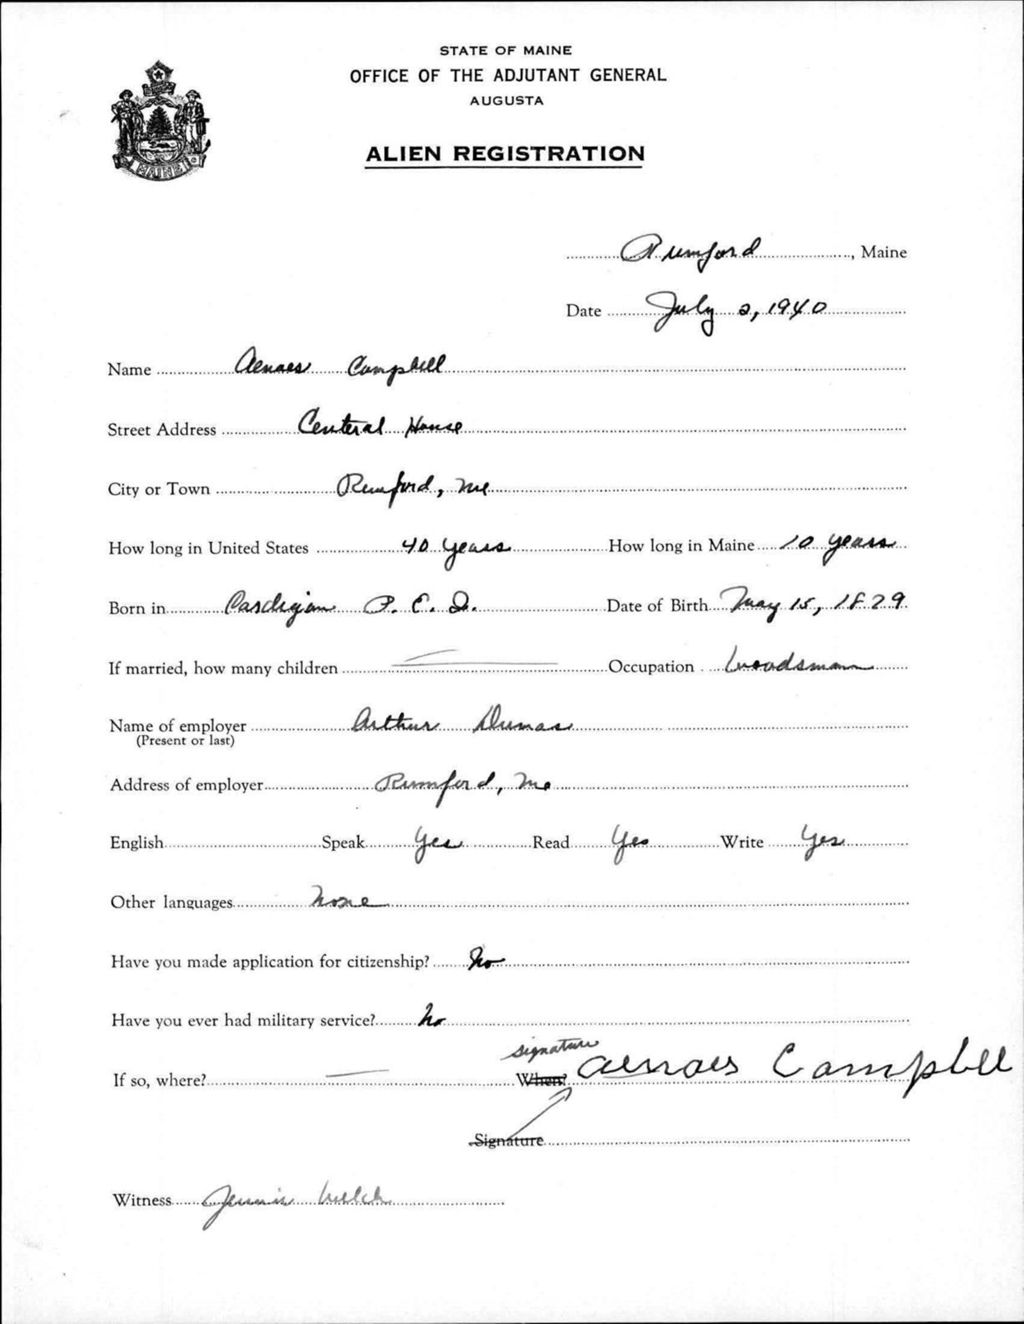 STATE OF MAINE
OFFICE OF THE ADJUTANT GENERAL
AUGUSTA
MAINE
ALIEN REGISTRATION
Rumford, Maine
Date July 2, 1940
Name Aenaes Campbell
Street Address Central House
City or Town Rumford, Me
How long in United States 40 years How long in Maine 10 years
Born in Cardigan P. E. I. Date of Birth May 15, 1879
If married, how many children — Occupation Woodsman
Name of employer Arthur Dumas
(Present or last)
Address of employer Rumford, Me
English Speak Yes Read Yes Write Yes
Other languages None
Have you made application for citizenship? No
Have you ever had military service? No
signature
If so, where? — When? Aenaes Campbell
Signature
Witness Jennie Welch